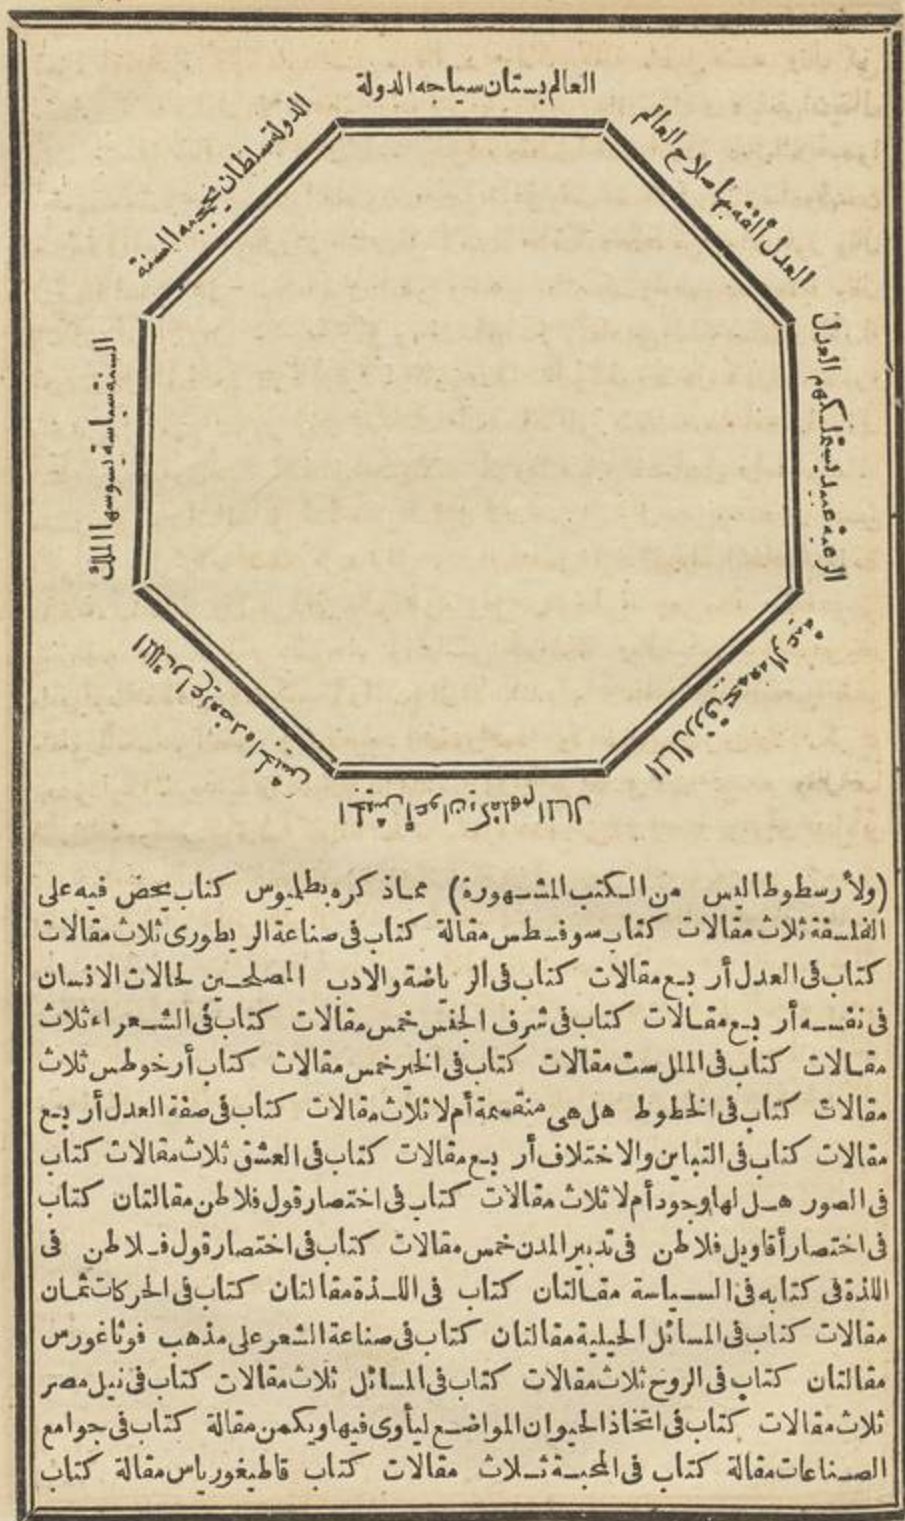 العالم بستان سياجه الدولة
الدولة سلطان تحجبه السنة
السنة سياسة يسوسها الملك
الملك راع يعضده الجيش
الجيش أعوان يكفلهم المال
المال رزق تجمعه الرعية
الرعية عبيد يستملكهم العدل
العدل ألفة بها صلاح العالم
(ولأرسطوطاليس من الكتب المشهورة) مما ذكره بطليموس كتاب يحض فيه على
الفلسفة ثلاث مقالات كتاب سوفسطس مقالة كتاب في صناعة الريطورى ثلاث مقالات
كتاب في العدل أربع مقالات كتاب في الرياضة والادب المصلحين لحالات الانسان
في نفسه أربع مقالات كتاب في شرف الجنس خمس مقالات كتاب في الشعراء ثلاث
مقالات كتاب في الملك ست مقالات كتاب في الخير خمس مقالات كتاب أرخوطس ثلاث
مقالات كتاب في الخطوط هل هى منقسمة أم لا ثلاث مقالات كتاب في صفة العدل أربع
مقالات كتاب في التباين والاختلاف أربع مقالات كتاب في العشق ثلاث مقالات كتاب
في الصور هل لها وجود أم لا ثلاث مقالات كتاب في اختصار قول فلاطن مقالتان كتاب
في اختصار أقاويل فلاطن في تدبير المدن خمس مقالات كتاب في اختصار قول فلاطن في
اللذة في كتابه في السياسة مقالتان كتاب في اللذة مقالتان كتاب في الحركات ثمان
مقالات كتاب في المسائل الحيلية مقالتان كتاب في صناعة الشعر على مذهب فوثاغورس
مقالتان كتاب في الروح ثلاث مقالات كتاب في المسائل ثلاث مقالات كتاب في نيل مصر
ثلاث مقالات كتاب في اتخاذ الحيوان المواضع ليأوى فيها ويكمن مقالة كتاب في جوامع
الصناعات مقالة كتاب في المحبة ثلاث مقالات كتاب قاطيغورياس مقالة كتاب